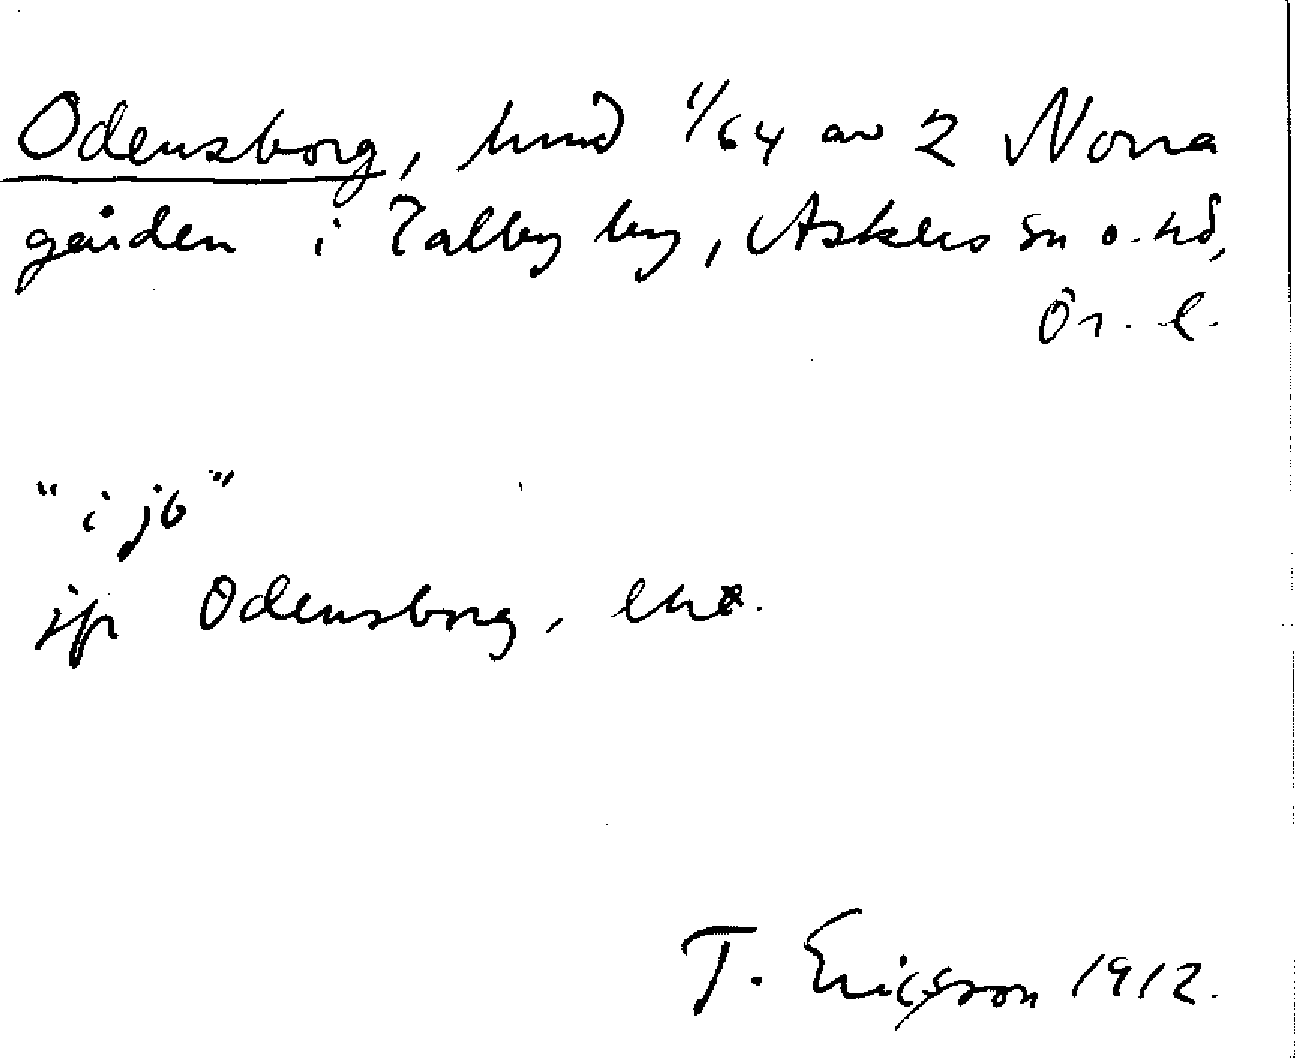 Odensborg, hmd 1/64 av 2 Norra
gården i Talby by, Askers sn o. hd,
Ör. l.
"i jb"
jfr Odensborg,
T. Ericsson 1912.